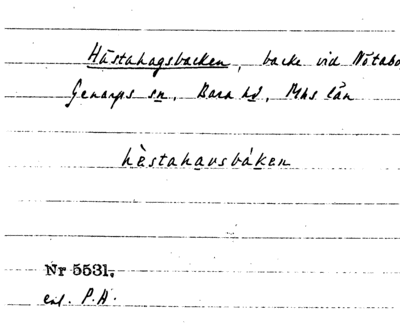 Hästahagsbacken, backe vid Nötabo
Genarps sn, Bara hd, Mhs län
hèstahavsbáken
Nr 5531.
enl. P.A.